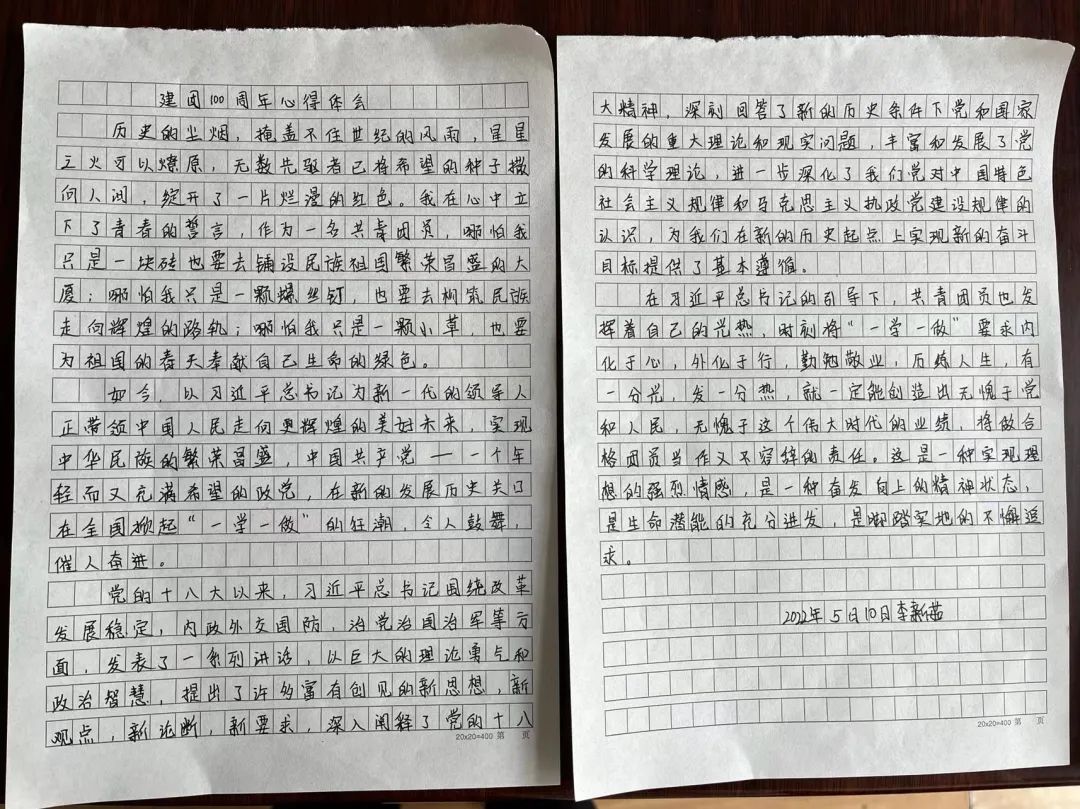 建团100周年心得体会
历史的尘烟，掩盖不住世纪的风雨，星星
之火可以燎原，无数先驱者已将希望的种子撒
向人间，绽开了一片烂漫的红色。我在心中立
下了青春的誓言，作为一名共青团员，哪怕我
只是一块砖也要去铺设民族祖国繁荣昌盛的大
厦；哪怕我只是一颗螺丝钉，也要去构筑民族
走向辉煌的路轨；哪怕我只是一颗小草，也要
为祖国的春天奉献自己生命的绿色。
如今，以习近平总书记为新一代的领导人
正带领中国人民走向更辉煌的美好未来，实现
中华民族的繁荣昌盛，中国共产党——一个年
轻而又充满希望的政党，在新的发展历史关口
在全国掀起“一学一做”的狂潮，令人鼓舞，
催人奋进。
党的十八大以来，习近平总书记围绕改革
发展稳定，内政外交国防，治党治国治军等方
面，发表了一系列讲话，以巨大的理论勇气和
政治智慧，提出了许多富有创见的新思想，新
观点，新论断，新要求，深入阐释了党的十八
20x20=400 第 页
大精神，深刻回答了新的历史条件下党和国家
发展的重大理论和现实问题，丰富和发展了党
的科学理论，进一步深化了我们党对中国特色
社会主义规律和马克思主义执政党建设规律的
认识，为我们在新的历史起点上实现新的奋斗
目标提供了基本遵循。
在习近平总书记的引导下，共青团员也发
挥着自己的光热，时刻将“一学一做”要求内
化于心，外化于行，勤勉敬业，历练人生，有
一分光，发一分热，就一定能创造出无愧于党
和人民，无愧于这个伟大时代的业绩，将做合
格团员当作义不容辞的责任。这是一种实现理
想的强烈情感，是一种奋发向上的精神状态，
是生命潜能的充分迸发，是脚踏实地的不懈追
求。
2022年5月10日李新茹
20x20=400 第 页